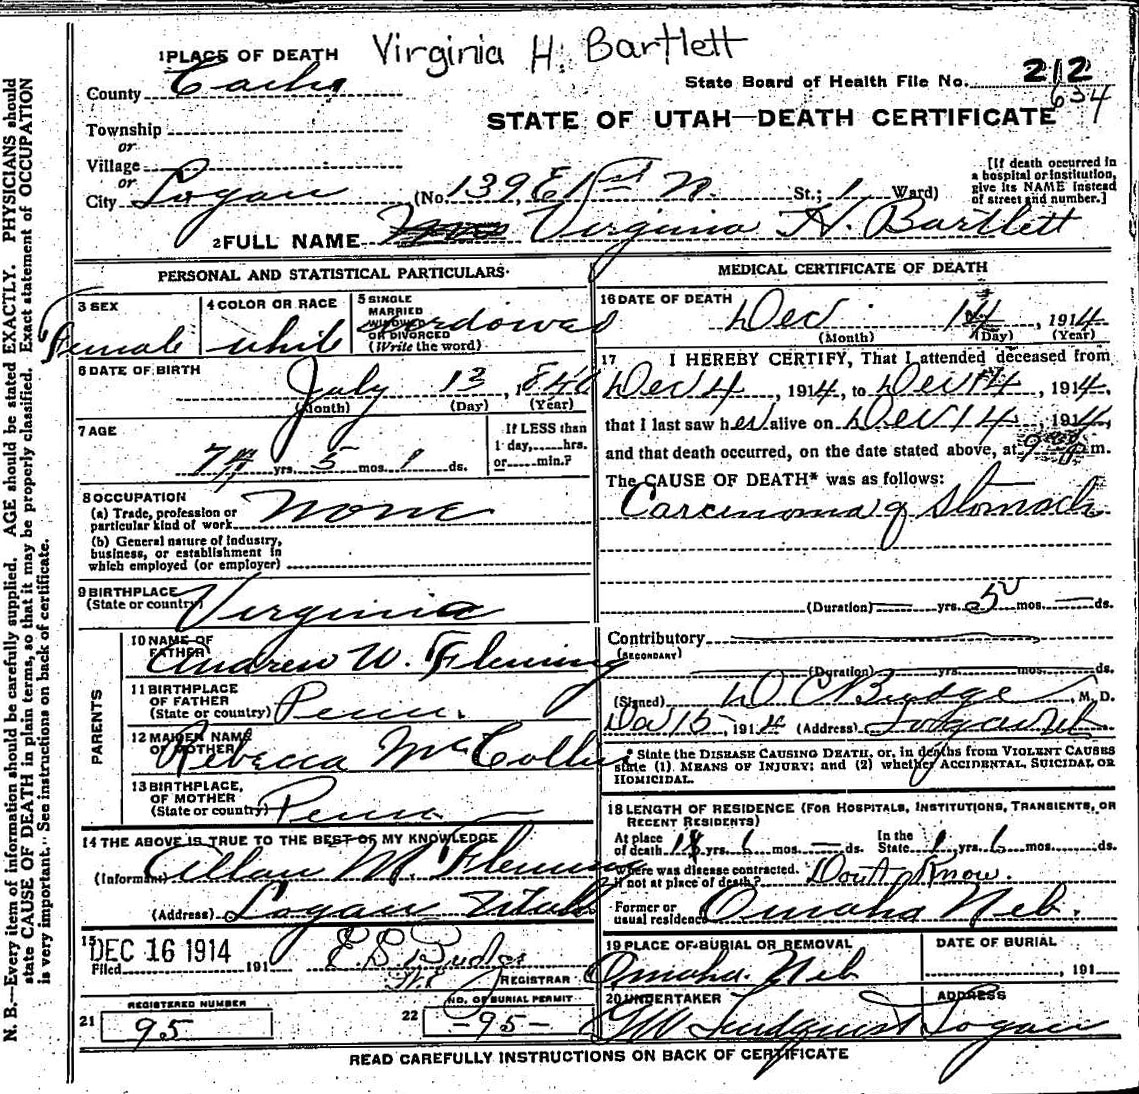 Virginia H. Bartlett
1 PLACE OF DEATH
County Cache
State Board of Health File No. 212
634
Township
or
Village
or
City Logan
STATE OF UTAH—DEATH CERTIFICATE
(No. 139 E 1st N. St.; 1 Ward)
[If death occurred in a hospital or institution, give its NAME instead of street and number.]
2 FULL NAME Virginia H. Bartlett
PERSONAL AND STATISTICAL PARTICULARS
3 SEX
Female
4 COLOR OR RACE
white
5 SINGLE
MARRIED
WIDOWED
OR DIVORCED
(Write the word)
6 DATE OF BIRTH
July 13, 1840
(Month) (Day) (Year)
7 AGE
74 yrs. 5 mos. 1 ds.
If LESS than
1 day,......hrs.
or......min.?
8 OCCUPATION
(a) Trade, profession or
particular kind of work
None
(b) General nature of industry,
business, or establishment in
which employed (or employer)
9 BIRTHPLACE
(State or country)
Virginia
PARENTS
10 NAME OF
FATHER
Andrew W. Fleming
11 BIRTHPLACE
OF FATHER
(State or country)
Penn.
12 MAIDEN NAME
OF MOTHER
Rebecca
13 BIRTHPLACE,
OF MOTHER
(State or country)
Penn
14 THE ABOVE IS TRUE TO THE BEST OF MY KNOWLEDGE
(Informant) Allan M. Fleming
(Address) Logan Utah
15 DEC 16 1914
Filed 191
REGISTRAR
REGISTERED NUMBER
21 95
NO. OF BURIAL PERMIT
22 -95-
MEDICAL CERTIFICATE OF DEATH
16 DATE OF DEATH
Dec 14, 1914
(Month) (Day) (Year)
17 I HEREBY CERTIFY, That I attended deceased from
Dec 4, 1914, to Dec 14, 1914,
that I last saw her alive on Dec 14, 1914,
and that death occurred, on the date stated above, at 9 m.
The CAUSE OF DEATH* was as follows:
Carcinoma of Stomach
(Duration) yrs. mos. ds.
Contributory
(SECONDARY)
(Duration) yrs. mos. ds.
(Signed) D C Budge, M. D.
15, 1914 (Address) Logan Utah
* State the DISEASE CAUSING DEATH, or, in deaths from VIOLENT CAUSES
state (1) MEANS OF INJURY; and (2) whether ACCIDENTAL, SUICIDAL OR
HOMICIDAL.
18 LENGTH OF RESIDENCE (FOR HOSPITALS, INSTITUTIONS, TRANSIENTS, OR
RECENT RESIDENTS)
At place
of death 1 yrs. 6 mos. ds.
In the
State 1 yrs. 6 mos. ds.
Where was disease contracted.
if not at place of death?
Don't Know.
Former or
usual residence Omaha Neb.
19 PLACE OF BURIAL OR REMOVAL
Omaha. Neb
DATE OF BURIAL
, 191
20 UNDERTAKER
Lindquist
ADDRESS
Logan
READ CAREFULLY INSTRUCTIONS ON BACK OF CERTIFICATE
N. B.—Every item of information should be carefully supplied. AGE should be stated EXACTLY. PHYSICIANS should
state CAUSE OF DEATH in plain terms, so that it may be properly classified. Exact statement of OCCUPATION
is very important. See instructions on back of certificate.